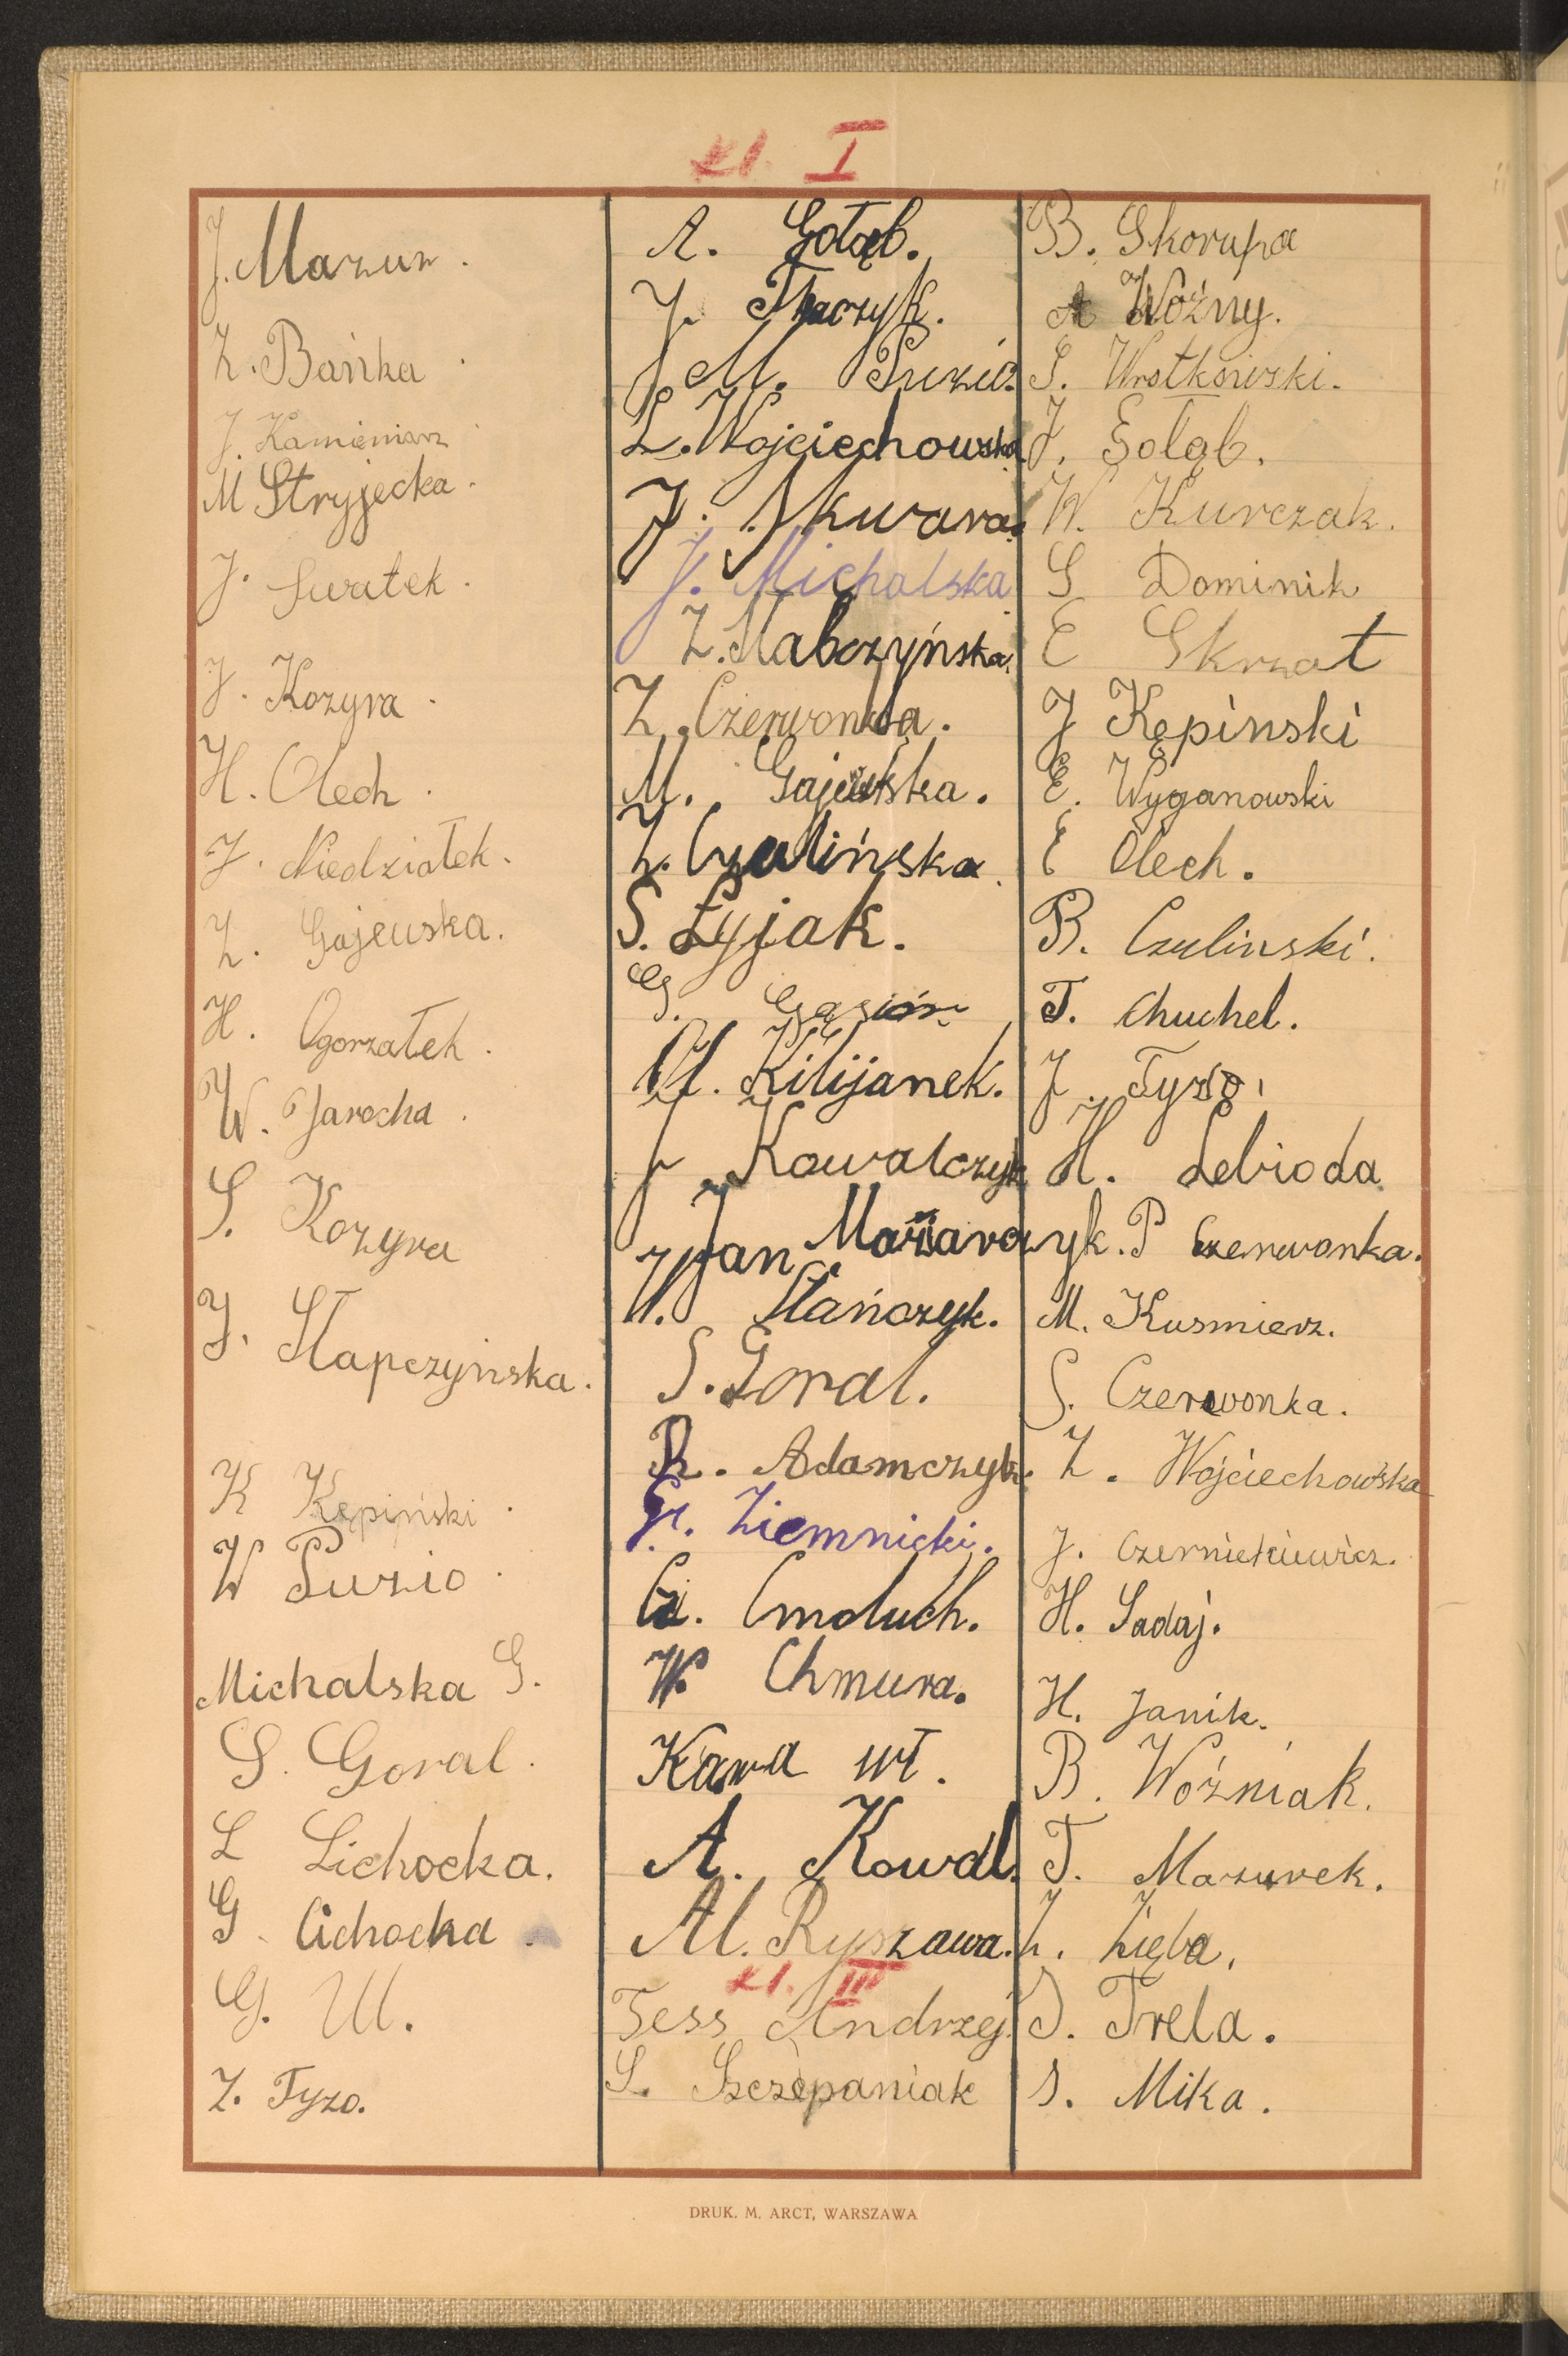 kl. I
J. Mazur.
Z. Bańka.
J. Kamieniarz
M Stryjecka.
J. Swatek.
J. Kozyra.
H. Olech.
J. Niedziałek.
Z. Gajewska.
H. Ogorzałek.
W. Jarocha.
S. Kozyra
J. Słapczyńska.
K Kępiński.
W Puzio.
Michalska G.
S. Goral.
L Lichocka.
G. Cichocka.
G. Ul.
Z. Tyzo.
A. Gołąb.
J. Tkaczyk.
M. Puzio.
L. Wojciechowska
J. Skwara.
J. Michalska
Z. Słabczyńska.
Z. Czerwonka.
M. Gajewska.
Z. Czulińska.
S. Łyjak.
G. Gąsior
M. Kilijanek.
J. Kowalczyk
Jan Maziarczyk.
W. Stańczyk.
S. Goral.
R. Adamczyk.
Cz. Ziemnicki.
Cz. Cmoluch.
W. Chmura.
Kawa Wł.
A. Kowal.
Al. Ryszawa.
kl. III
Tess Andrzej.
S. Szczepaniak
B. Skorupa
A Woźny.
S. Wrotkowski.
J. Gołąb.
W. Kurczak.
S Dominik
E Skrzat
J Kępinski
E. Wyganowski
E Olech.
B. Czulinski.
T. Chuchel.
J. Tyzo.
H. Lebioda
P Czerwonka.
M. Kusmierz.
S. Czerwonka.
Z. Wojciechowska
J. Czernickiewicz.
H. Sadaj.
H. Janik.
B. Woźniak.
T. Mazurek.
Z. Zięba.
J. Trela.
S. Mika.
DRUK. M. ARCT, WARSZAWA